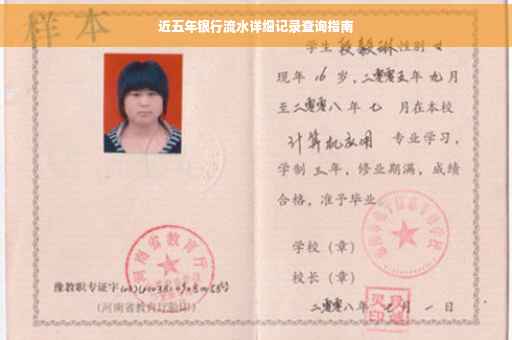 近五年银行流水详细记录查询指南
样本
学生 段毅琳 性别 女
现年 16 岁，二零零五年 九 月
至二零零八年 七 月在本校
计算机应用 专业学习，
学制 三 年，修业期满，成绩
合格，准予毕业
学校（章）
校长（章）
二零零八年 七 月 一 日
河南省教育厅
豫教职专证字
（河南省教育厅验印）